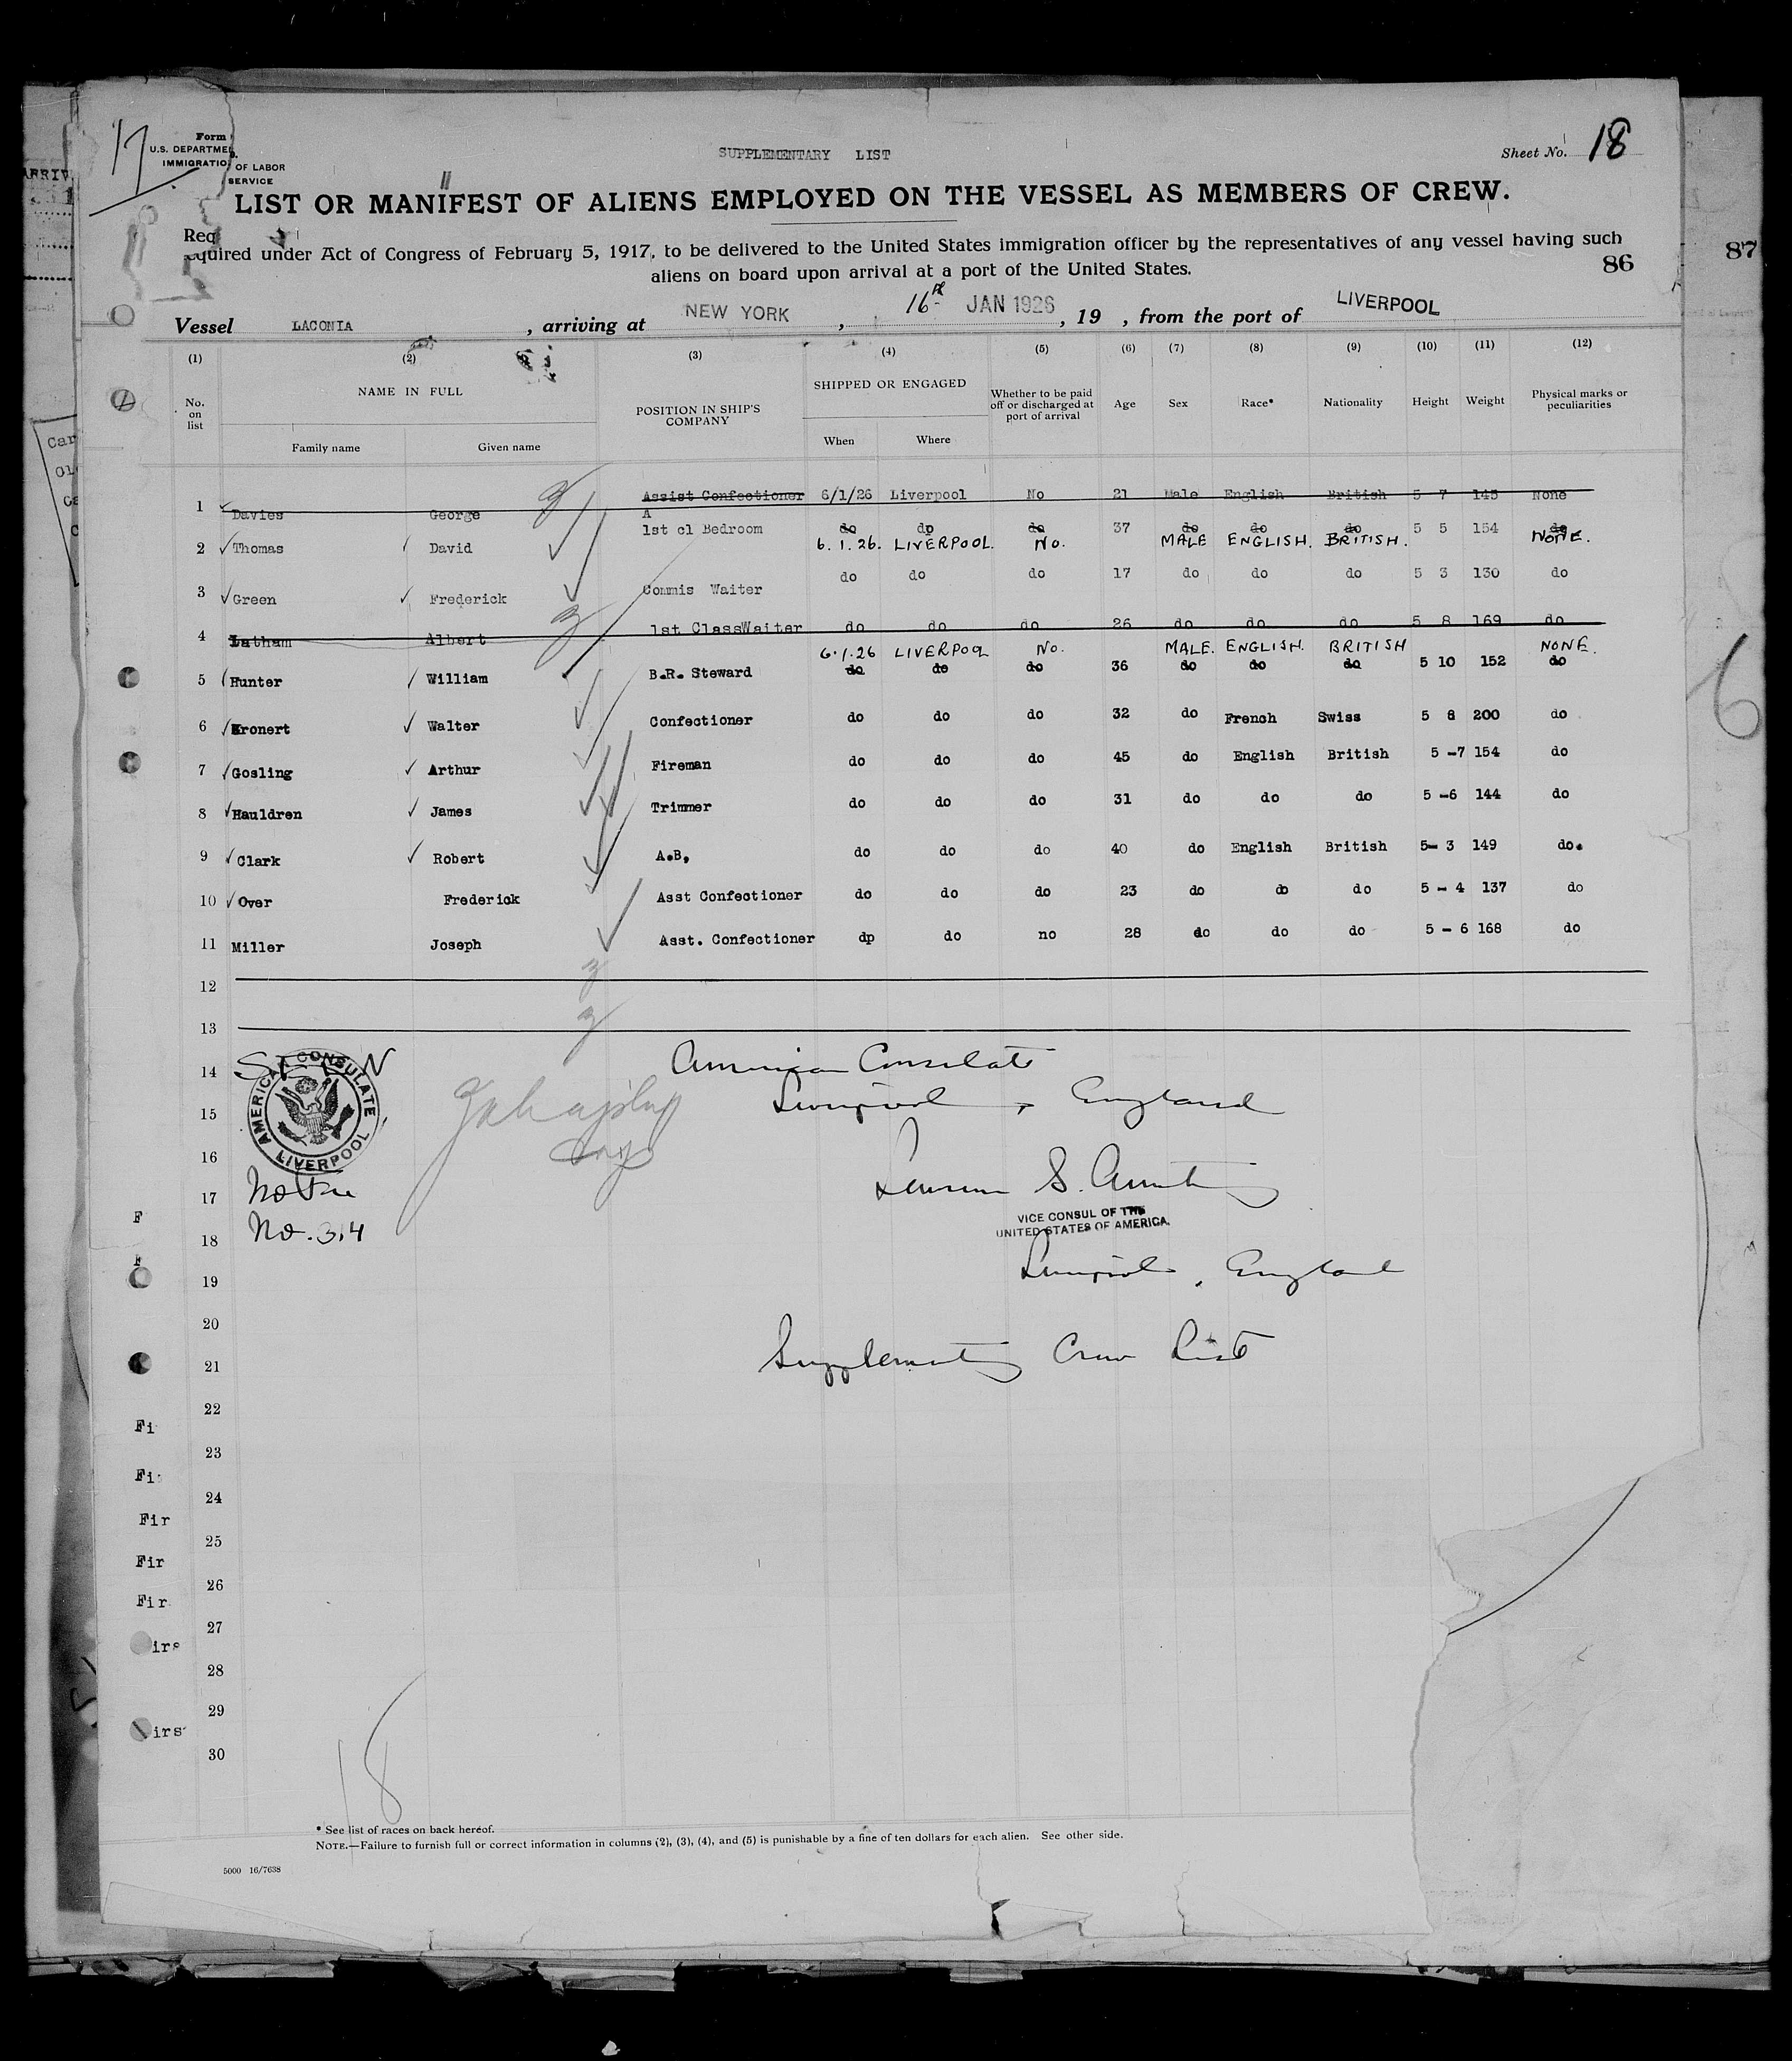 17
Form
U.S. DEPARTMEN
IMMIGRATIO
OF LABOR
SERVICE
SUPPLEMENTARY LIST
Sheet No. 18
LIST OR MANIFEST OF ALIENS EMPLOYED ON THE VESSEL AS MEMBERS OF CREW.
Req
equired under Act of Congress of February 5, 1917, to be delivered to the United States immigration officer by the representatives of any vessel having such
aliens on board upon arrival at a port of the United States.
86
87
Vessel LACONIA, arriving at NEW YORK, 16th JAN 1926, 19 , from the port of LIVERPOOL
(1) (2) (3) (4) (5) (6) (7) (8) (9) (10) (11) (12)
No. on list NAME IN FULL POSITION IN SHIP'S COMPANY SHIPPED OR ENGAGED Whether to be paid off or discharged at port of arrival Age Sex Race* Nationality Height Weight Physical marks or peculiarities
Family name Given name When Where
1 Davies George Assist Confectioner 6/1/26 Liverpool No 21 Male English British 5 7 145 None
A
2 Thomas David 1st cl Bedroom do dp do 37 do do do 5 5 154 do
6.1.26. LIVERPOOL. No. MALE ENGLISH. BRITISH. NONE.
3 Green Frederick Commis Waiter do do do 17 do do do 5 3 130 do
4 Latham Albert 1st ClassWaiter do do do 26 do do do 5 8 169 do
6.1.26 LIVERPOOL No. MALE. ENGLISH. BRITISH NONE.
5 Hunter William B.R. Steward do do do 36 do do do 5 10 152 do
6 Kronert Walter Confectioner do do do 32 do French Swiss 5 8 200 do
7 Gosling Arthur Fireman do do do 45 do English British 5 -7 154 do
8 Hauldren James Trimmer do do do 31 do do do 5 -6 144 do
9 Clark Robert A.B, do do do 40 do English British 5- 3 149 do.
10 Over Frederick Asst Confectioner do do do 23 do do do 5 - 4 137 do
11 Miller Joseph Asst. Confectioner dp do no 28 do do do 5 - 6 168 do
12
13
14 American Consulate
15 Liverpool, England
AMERICAN CONSULATE
LIVERPOOL
16
17 No Fee
S. Armstrong
VICE CONSUL OF THE
UNITED STATES OF AMERICA.
18 No. 314
19 Liverpool, England
20
21 Supplementary Crew List
22
23
24
25
26
27
28
29
30
18
* See list of races on back hereof.
NOTE.—Failure to furnish full or correct information in columns (2), (3), (4), and (5) is punishable by a fine of ten dollars for each alien. See other side.
5000 16/7638